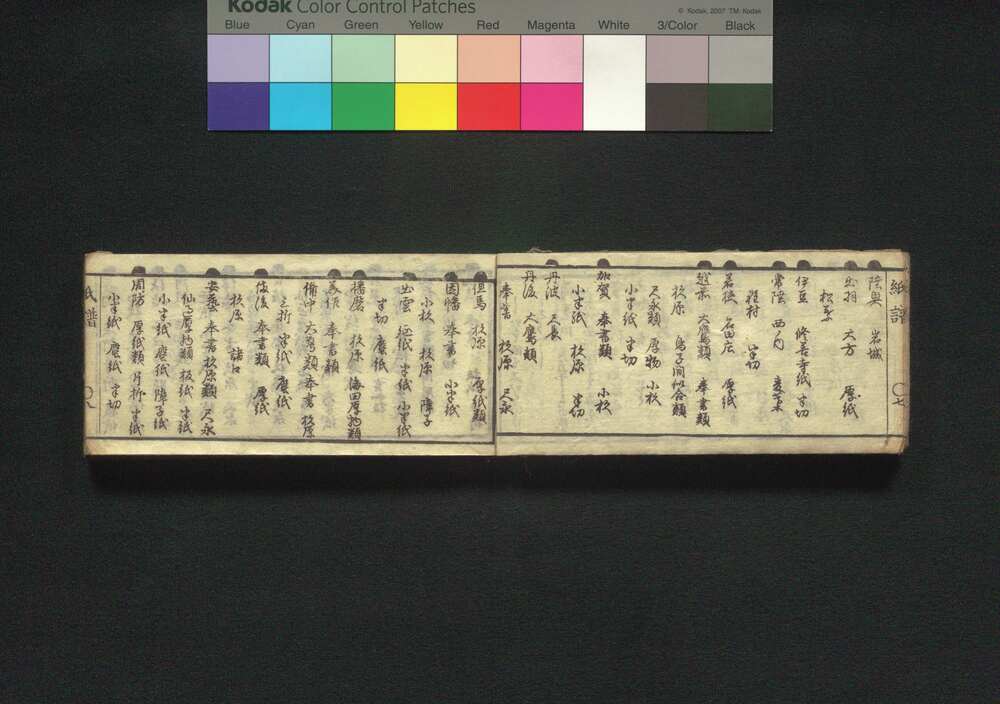 Kodak Color Control Patches
© Kodak, 2007 TM: Kodak
Blue Cyan Green Yellow Red Magenta White 3/Color Black
紙譜 〇七
陸奥 岩城
出羽 大方 厚紙
伊豆 修善寺紙 半切
常陸 西ノ内
半切
若狭 名田庄 厚紙
越前 大鷹類 奉書類
杉原 鳥子間似合類
尺永類 厚物 小杉
小半紙 半切
加賀 奉書類 小杉
小半紙 杉原 半切
丹波 尺長
丹後 大鷹類
奉書 杉原 尺永
但馬 杉原 厚紙類
因幡 奉書 小半紙
小杉 杉原 障子
出雲 紙 半紙 小半紙
半切 塵紙
播磨 杉原 海田厚物類
美作 奉書類
備中 大鷹類 奉書 杉原
三折 半紙 塵紙
備後 奉書類 厚紙
杉原 諸口
安藝 奉書 杉原類 尺永
仙厚物類 板紙 半紙
小半紙 塵紙 障子紙
周防 厚紙類 片折 半紙
小半紙 塵紙 半切
紙譜 〇八